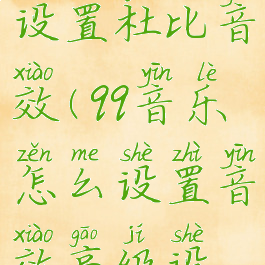 设置杜比音
xiào yīn lè
效(99音乐
zěn me shè zhì yīn
怎么设置音
xiào gāo jí shè
效高级设